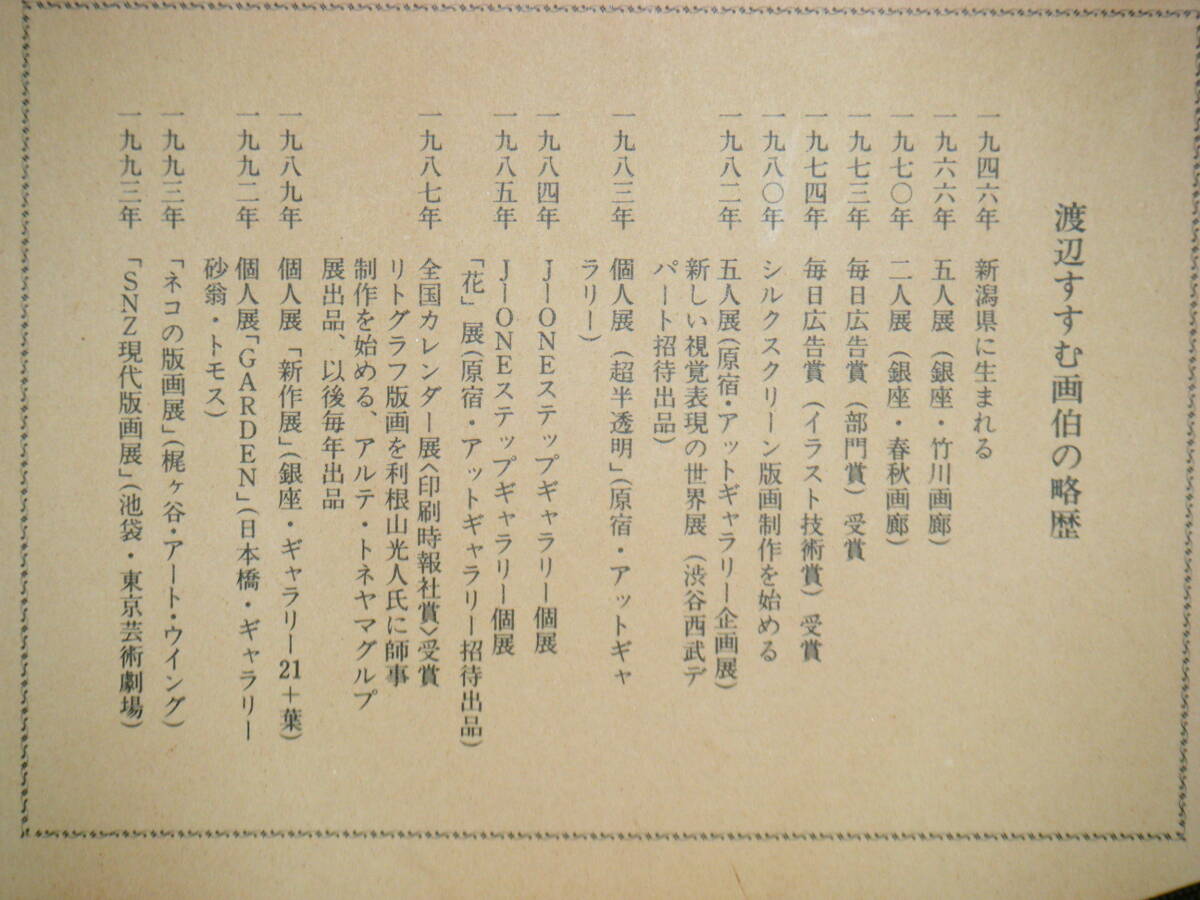 渡辺すすむ画伯の略歴
一九四六年　新潟県に生まれる
一九六六年　五人展（銀座・竹川画廊）
一九七〇年　二人展（銀座・春秋画廊）
一九七三年　毎日広告賞（部門賞）受賞
一九七四年　毎日広告賞（イラスト技術賞）受賞
一九八〇年　シルクスクリーン版画制作を始める
一九八二年　五人展（原宿・アットギャラリー企画展）
新しい視覚表現の世界展（渋谷西武デ
パート招待出品）
一九八三年　個人展（超半透明」（原宿・アットギャ
ラリー）
一九八四年　J―ONEステップギャラリー個展
一九八五年　J―ONEステップギャラリー個展
「花」展（原宿・アットギャラリー招待出品）
一九八七年　全国カレンダー展〈印刷時報社賞〉受賞
リトグラフ版画を利根山光人氏に師事
制作を始める、アルテ・トネヤマグルプ
展出品、以後毎年出品
一九八九年　個人展「新作展」（銀座・ギャラリー21＋葉）
一九九二年　個人展「GARDEN」（日本橋・ギャラリー
砂翁・トモス）
一九九三年　「ネコの版画展」（梶ヶ谷・アート・ウイング）
一九九三年　「SNZ現代版画展」（池袋・東京芸術劇場）